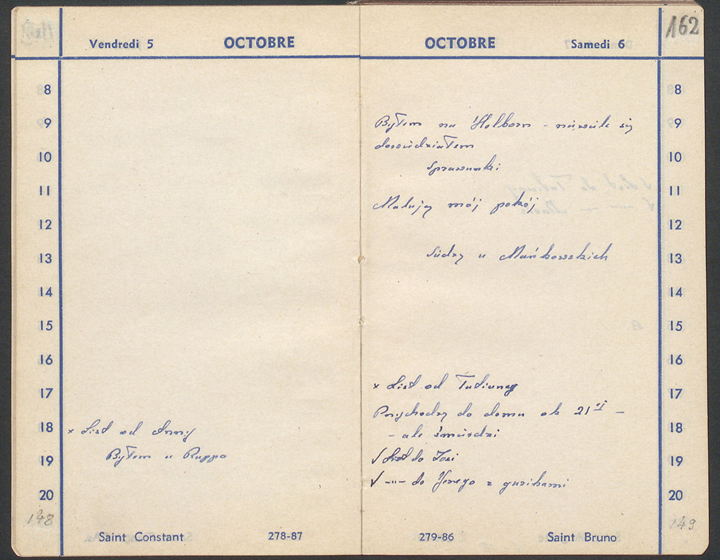 Vendredi 5 OCTOBRE
8
9
10
11
12
13
14
15
16
17
18
19
20
x List od Anny
Byłem u Ruppa
148
Saint Constant 278-87
OCTOBRE Samedi 6
162
Byłem na Holborn - niewiele się
dowiedziałem
Sprawunki
Maluję mój pokój
Siedzę u Mańkowskich
x List od
Przychodzę do domu ok 21
- ale śmierdzi
√ List do Zosi
√ -"- do Jerzego z guzikami
8
9
10
11
12
13
14
15
16
17
18
19
20
149
279-86 Saint Bruno